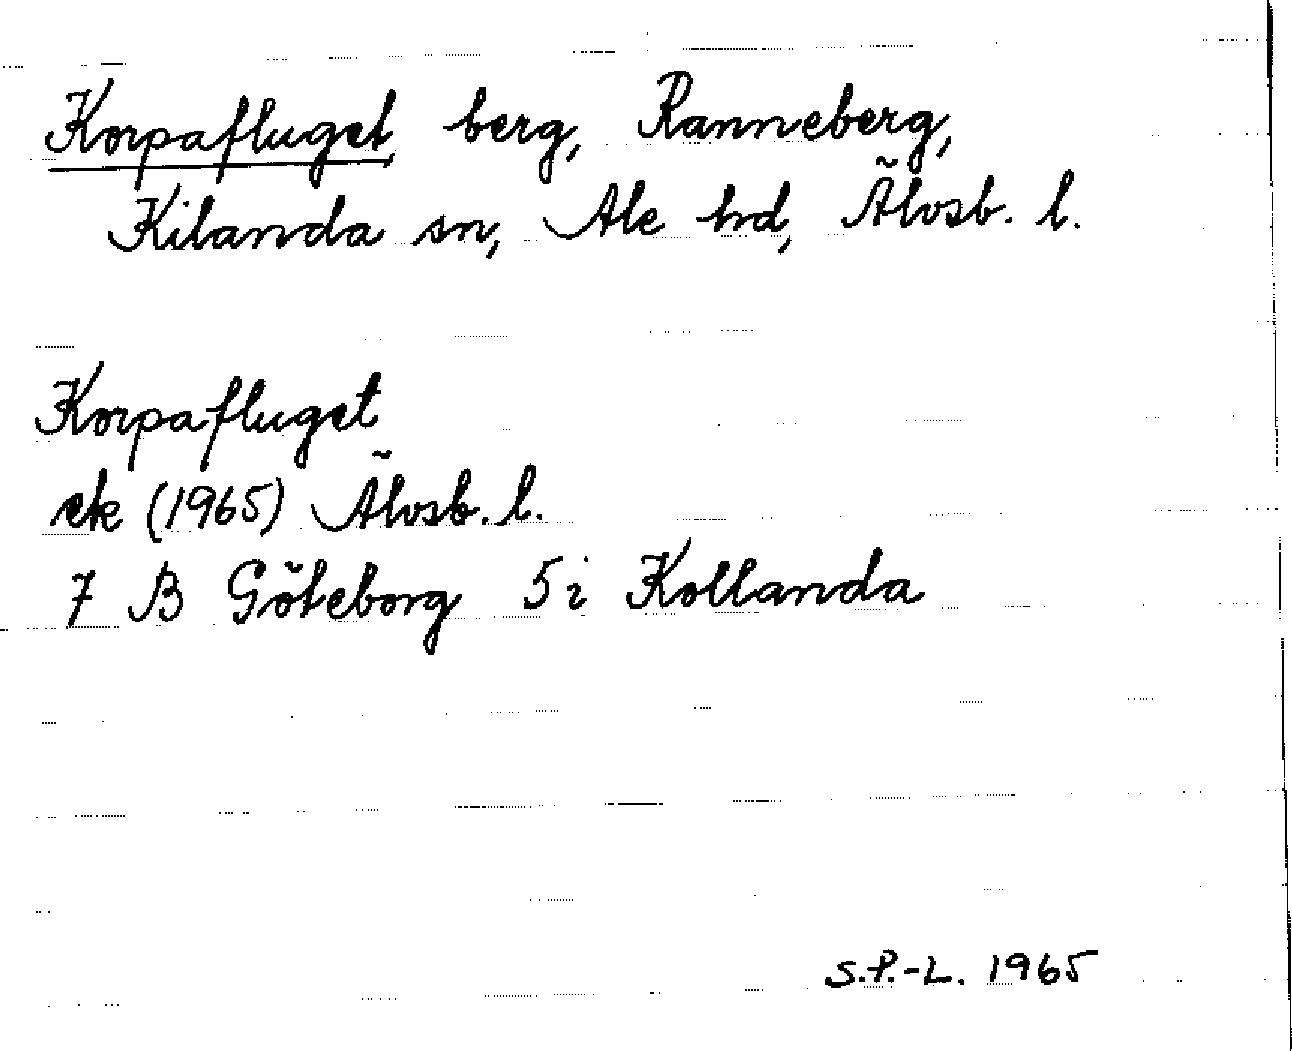 Korpafluget, berg, Ranneberg,
Kilanda sn, Ale hd, Älvsb. l.
Korpafluget
ek (1965) Älvsb. l.
7 B Göteborg 5i Kollanda
S.P.-L. 1965